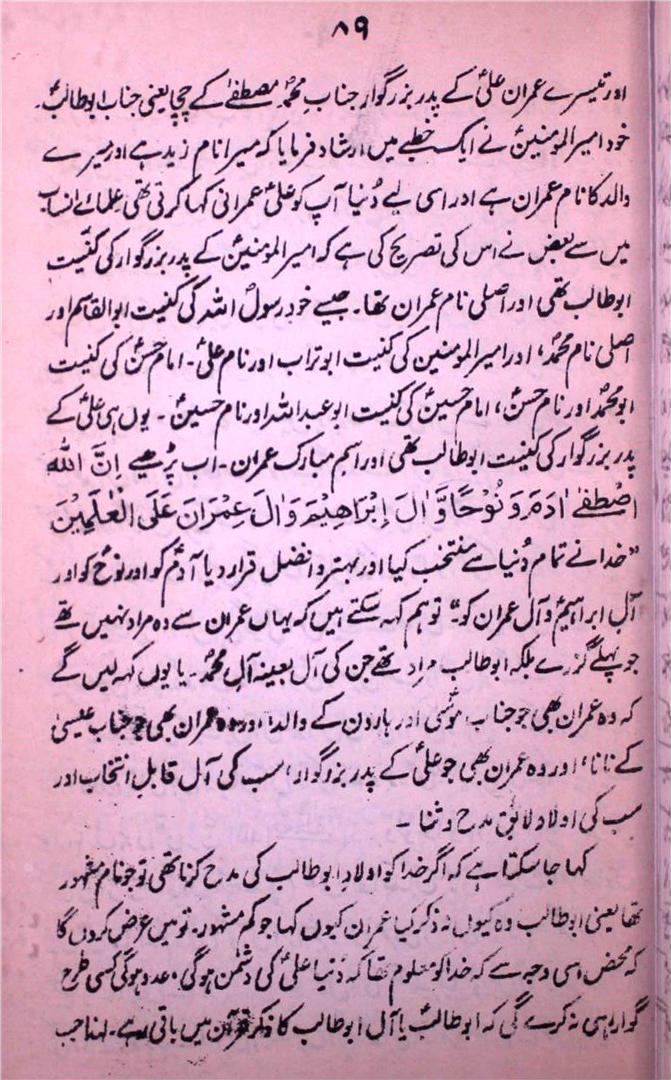 ۸۹
اور تیسرے عمران علیؑ کے پدر بزرگوار جناب محمدؐ مصطفےٰ کے چچا یعنی جناب ابو طالبؑ۔
خود امیرالمومنینؑ نے ایک خطبے میں ارشاد فرمایا کہ میرا نام زید ہے اور میرے
والد کا نام عمران ہے اور اسی لیے دُنیا آپ کو علیؑ عمرانی کہا کرتی تھی علمائے انساب
میں سے بعض نے اس کی تصریح کی ہے کہ امیرالمومنینؑ کے پدر بزرگوار کی کنیت
ابو طالب تھی اور اصلی نام عمران تھا۔ جیسے خود رسولؐ اللہ کی کنیت ابوالقاسم اور
اصلی نام محمدؐ، اور امیرالمومنین کی کنیت ابو تراب اور نام علیؑ۔ امام حسنؑ کی کنیت
ابو محمدؐ اور نام حسنؑ، امام حسینؑ کی کنیت ابو عبداللہ اور نام حسینؑ۔ یوں ہی علیؑ کے
پدر بزرگوار کی کنیت ابو طالب تھی اور اسم مبارک عمران۔ اب پڑھیے اِنَّ اللّٰہَ
اصْطَفٰے اٰدَمَ وَ نُوْحًا وَّ اٰلَ اِبْرَاھِیْمَ وَ اٰلَ عِمْرَانَ عَلَی الْعٰلَمِیْنَ
”خدا نے تمام دُنیا سے منتخب کیا اور بہتر و افضل قرار دیا آدمؑ کو اور نوحؑ کو اور
آلِ ابراہیمؑ و آلِ عمران کو“ تو ہم کہہ سکتے ہیں کہ یہاں عمران سے وہ مراد نہیں تھے
جو پہلے گزرے بلکہ ابو طالب مراد تھے جن کی آل بعینہ آلِ محمدؐ۔ یا یوں کہہ لیں گے
کہ وہ عمران بھی جو جناب موسٰیؑ اور ہارون کے والد، اور وہ عمران بھی جو جناب عیسیٰؑ
کے نانا، اور وہ عمران بھی جو علیؑ کے پدر بزرگوار، سب کی آل قابلِ انتخاب اور
سب کی اولاد لائق مدح و ثنا۔
کہا جا سکتا ہے کہ اگر خدا کو اولادِ ابو طالب کی مدح کرنا تھی تو جو نام مشہور
تھا یعنی ابو طالب وہ کیوں نہ ذکر کیا عمران کیوں کہا جو کم مشہور۔ تو میں عرض کروں گا
کہ محض اسی وجہ سے کہ خدا کو معلوم تھا کہ دُنیا علیؑ کی دشمن ہوگی، عدو ہوگی کسی طرح
گوارا ہی نہ کرے گی کہ ابو طالبؑ یا آلِ ابو طالب کا ذکر قرآن میں باقی رہے۔ لہٰذا جب